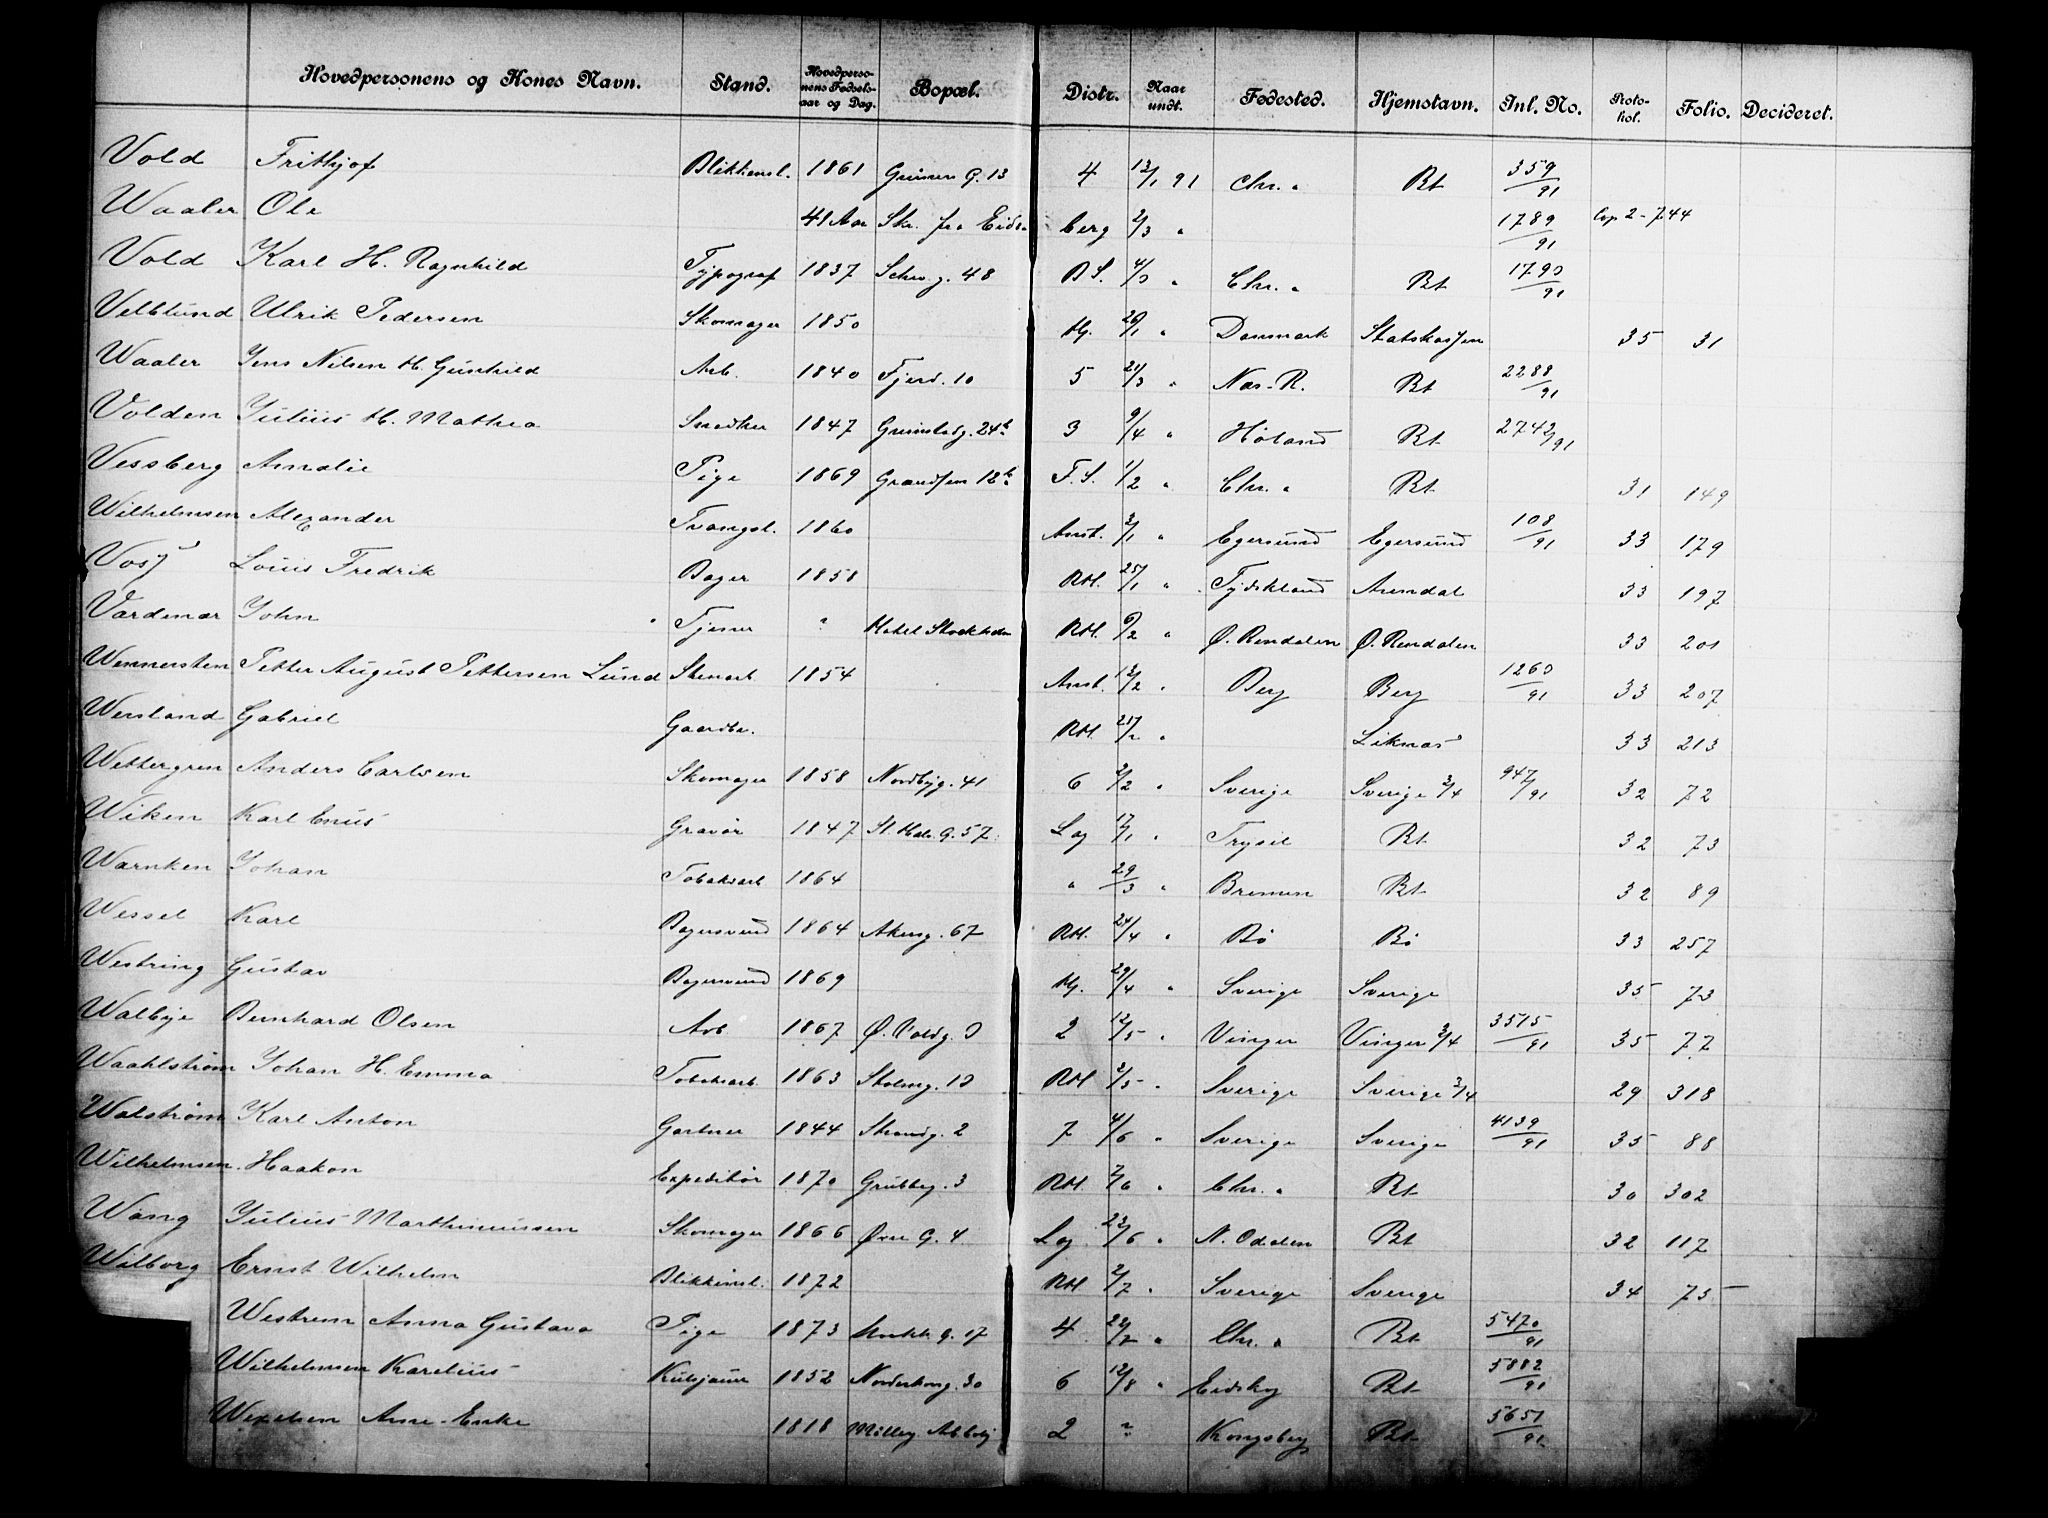 Hovedpersonens og Kones Navn. Stand. Hovedpersonens Fødselsaar og Dag. Bopæl. Distr. Naar undt. Fødested. Hjemstavn. Inl. No. Protokol. Folio. Decideret.
Vold Frithjof Blikkensl. 1861 G. 13 4 12/1 91 Chr.a Bt 359/91
Waaler Ole 41 Aar Skr. fra Eidsberg 2/3 " 1789/91 Cop 2-744
Vold Karl H. Ragnhild Typograf 1837 Schw.g. 48 B S. 4/3 " Chr.a Bt 1790/91
Velblund Ulrik Pedersen Skomager 1850 Hj. 20/1 " Danmark Statskassen 35 31
Waaler Jens Nilsen H. Gunhild Arb. 1840 Fjerd. 10 5 21/3 " Næs-R. Bt 2288/91
Volden Julius H. Mathea Snedker 1847 24b 3 9/4 " Høland Bt 2742/91
Vessberg Amalie Pige 1869 Grændsen 12b F. S. 1/2 " Chr.a Bt 31 149
Wilhelmsen Alexander Tvangsl. 1860 Anst. 2/1 " Egersund Egersund 108/91 33 179
Voss Louis Fredrik Bager 1858 RH. 25/1 " Tydskland Arendal 33 197
Vardenær John " Tjener " Hotel Stockholm RH. 6/2 " Ø. Rendalen Ø. Rendalen 33 201
Wennersten Petter August Pettersen Lund Stenarb 1854 Anst. 12/2 " Berg Berg 1260/91 33 207
Wersland Gabriel Gaardbr. RH. 21/2 " Liknæs 33 213
Wettergren Anders Carlsen Skomager 1858 Nordbyg. 41 6 2/2 " Sverige Sverige 3/4 947/91 32 72
Wiken Karl Enus Gravør 1847 St. Halv. G. 57 Lag 17/1 " Trysil Bt 32 73
Warnken Johan Tobaksarb 1864 " 29/3 " Bremen Bt 32 89
Wessel Karl Bagersvend 1864 Akersg. 67 RH. 24/4 " Bø Bø 33 257
Westring Gustav Bagersvend 1869 Hj. 29/4 " Sverige Sverige 35 73
Walbye Bernhard Olsen Arb 1867 Ø. Voldg. 9 2 12/5 " Vinger Vinger 3/4 3515/91 35 77
Waahlstrøm Johan H. Emma Tobaksarb. 1863 Stolmg. 10 RH 2/5 " Sverige Sverige 3/4 29 318
Walstrøm Karl Anton Gartner 1844 Strandg. 2 7 4/6 " Sverige Sverige 4139/91 35 88
Wilhelmsen Haakon Expeditør 1870 Grubbeg. 3 RH. 7/6 " Chr.a Bt 30 302
Wang Julius Marthinussen Skomager 1866 Øvre G. 4 Lag 23/6 " N. Odalen Bt 32 117
Wilborg Ernst Wilhelm Blikkensl. 1872 RH 2/7 " Sverige Sverige 34 75
Westrem Anna Gustava Pige 1873 G. 17 4 22/7 " Chr.a Bt 5470/91
Wilhelmsen Karelius Kulsjouer 1852 30 6 12/8 " Eidskog Bt 5882/91
Wexelsen Anne 1818 2 " Kongsberg Bt 5651/91